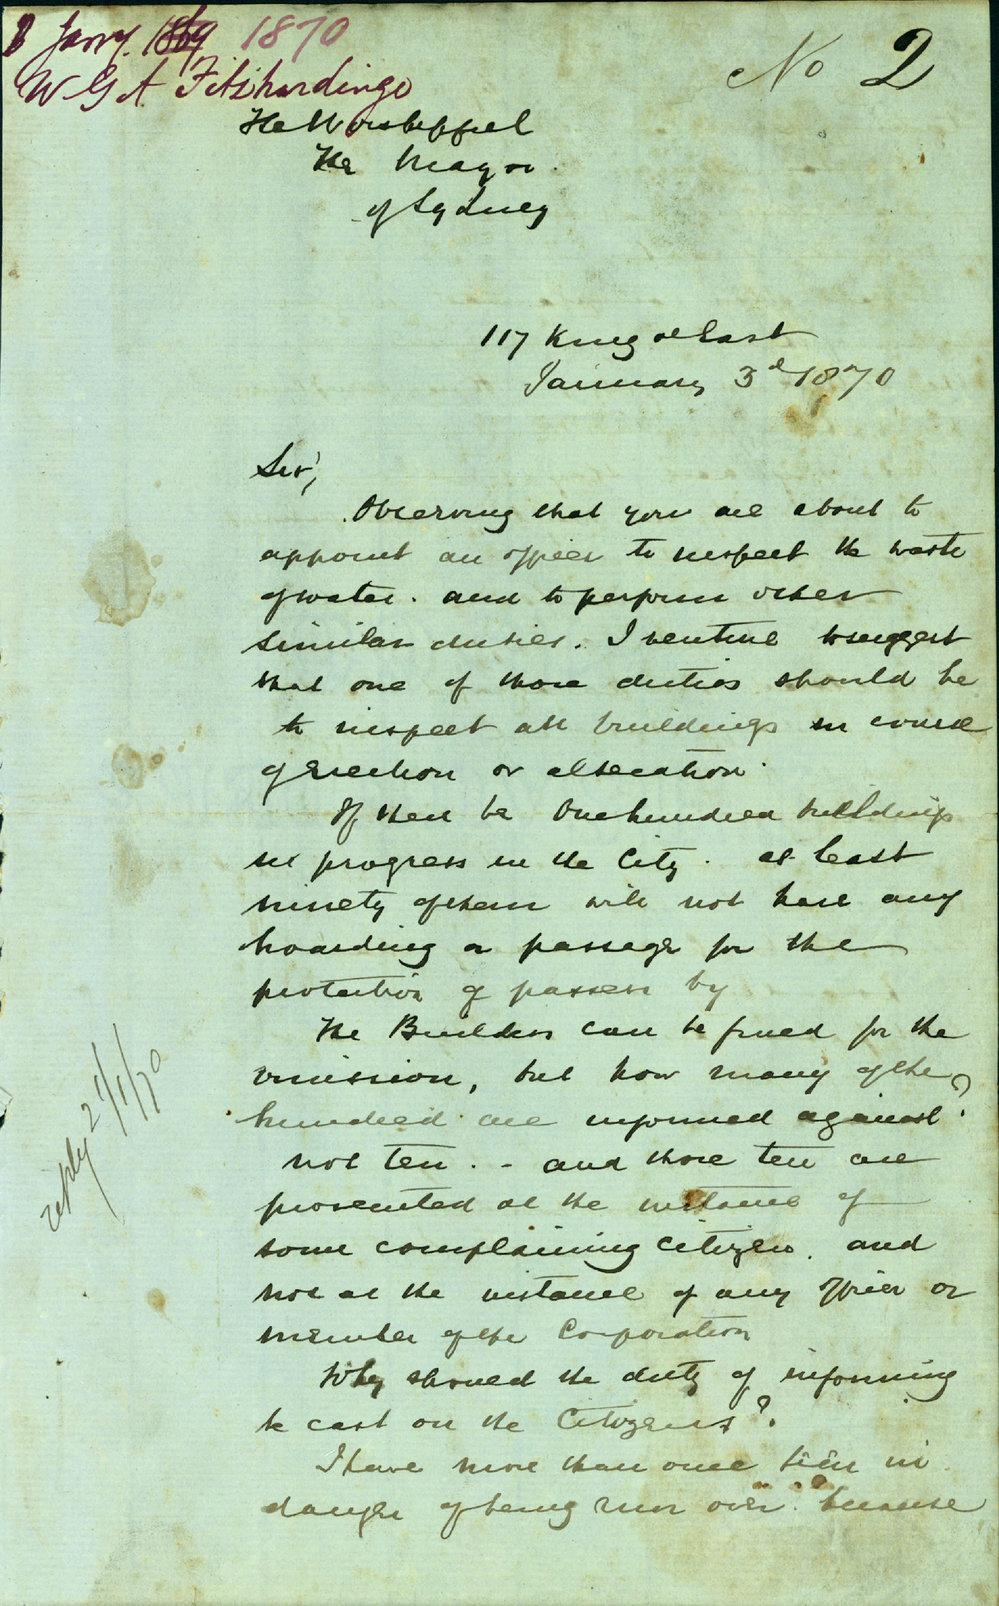 Janry. 1869 1870
W G A Fitzhardinge
No 2
The Worshipful
The Mayor
of Sydney
117 King st East
January 3d 1870
Sir,
Observing that you are about to
appoint an officer to inspect the waste
of water. and to perform other
similar duties. I venture to suggest
that one of those duties should be
to inspect all buildings in course
of erection or alteration.
If there be one hundred buildings
in progress in the City. at least
ninety of them will not have any
hoarding or passage for the
protection of passers by
The Builders can be fined for the
omission, but how many of the
hundred are informed against?
not ten. - and those ten are
prosecuted at the instance of
some complaining citizen. and
not at the instance of any officer or
member of the Corporation
Why should the duty of informing
be cast on the Citizens?
I have more than once been in
danger of being run over because
reply 21/1/70